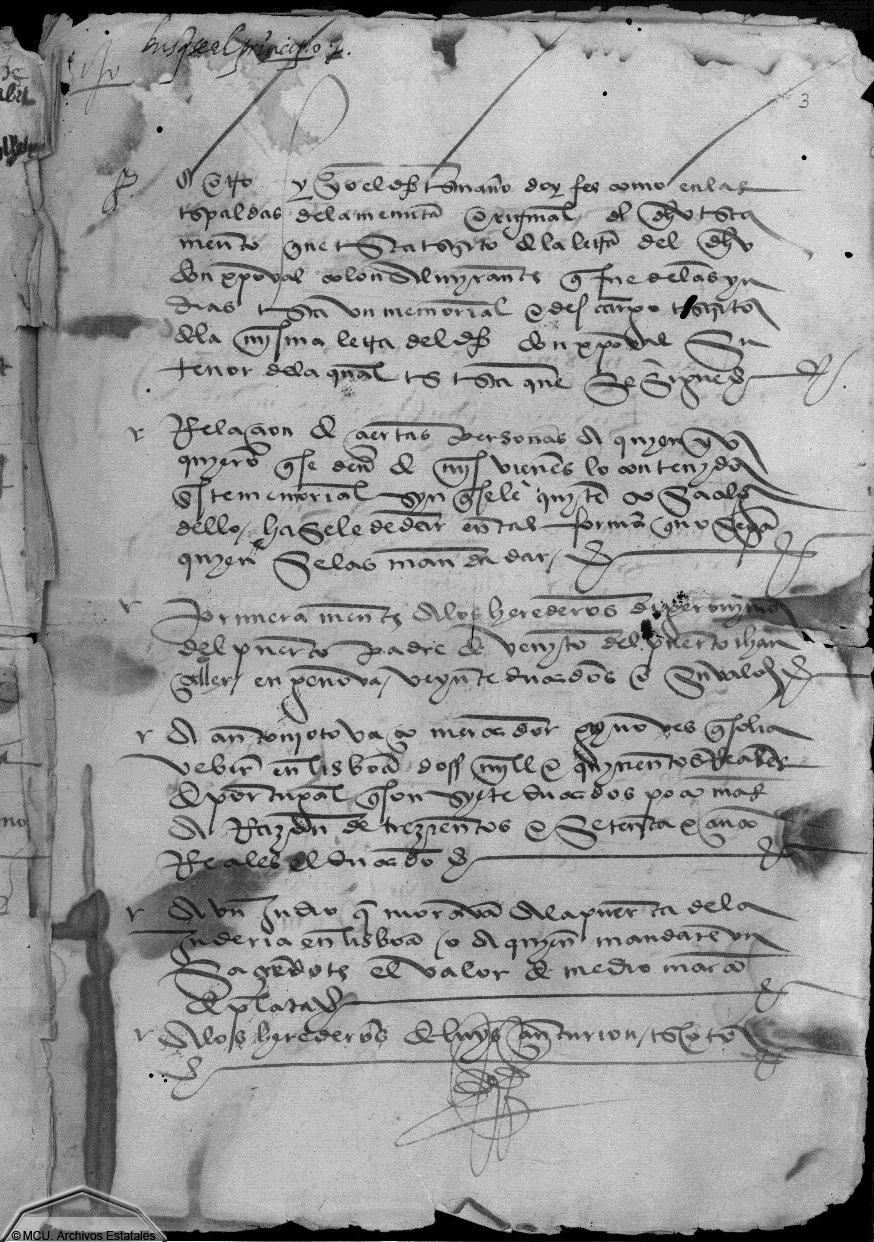 busquese al principio
3
E otro y yo el dho escriuano doy fee como en las
espaldas de la menuta original del dho testa
mento que esta escrito de la letra del dho
don xpoval colon Almyrante que fue de las yn
dias esta vn memorial e descargo escrito
de la mysma letra del dho don xpoval Su
tenor de la qual es esta que se sigue
Relaçion de çiertas personas a quyen yo
quyero que se den de mys vienes lo contenydo
en este memorial syn que se le quyte cosa algª
dello / hasele de dar en tal forma que no sepa
quyen Se las manda dar /
Primeramente a los herederos de geronimo
del puerto padre de venyto del puerto chan
çeller en genova / veynte ducados o Su valor
A antonyo vaço mercador gynoves que solia
vebir en lisboa dos myll e quynientos Reales
de portugal que son syete ducados poco mas
A Razon de trezientos e setenta e çinco
Reales el ducado
A vn Judio que morava a la puerta de la
Juderia en lisboa / o a quyen mandare vn
Saçerdote el valor de medio marco
de plata
A los herederos de luys çenturion / escoto
© MCU. Archivos Estatales